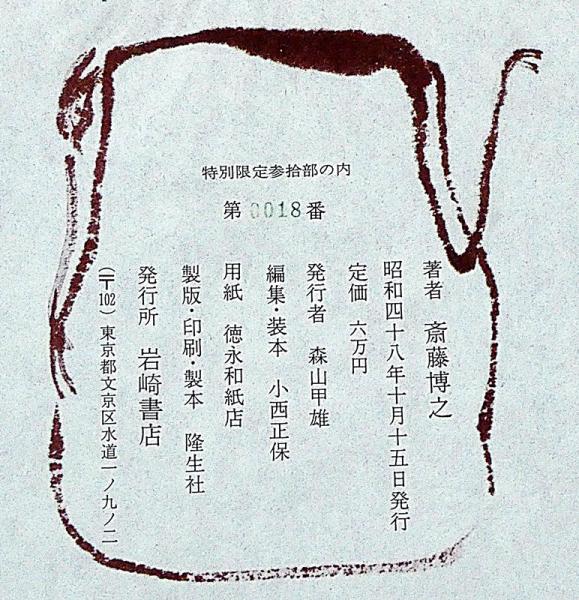 特別限定参拾部の内
第0018番
著者 斎藤博之
昭和四十八年十月十五日発行
定価 六万円
発行者 森山甲雄
編集・装本 小西正保
用紙 徳永和紙店
製版・印刷・製本 隆生社
発行所 岩崎書店
(〒102) 東京都文京区水道一ノ九ノ二